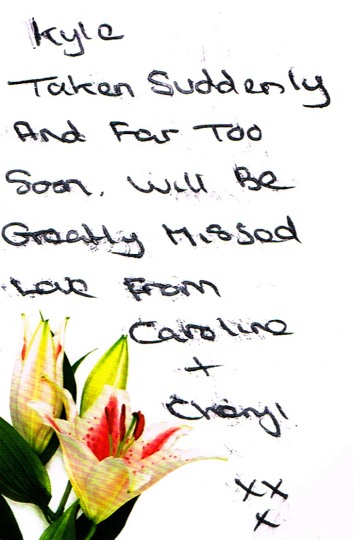 Kyle
Taken Suddenly
And Far Too
Soon. Will Be
Greatly Missed
Love From
Caroline
+
Cheryl
xx
x